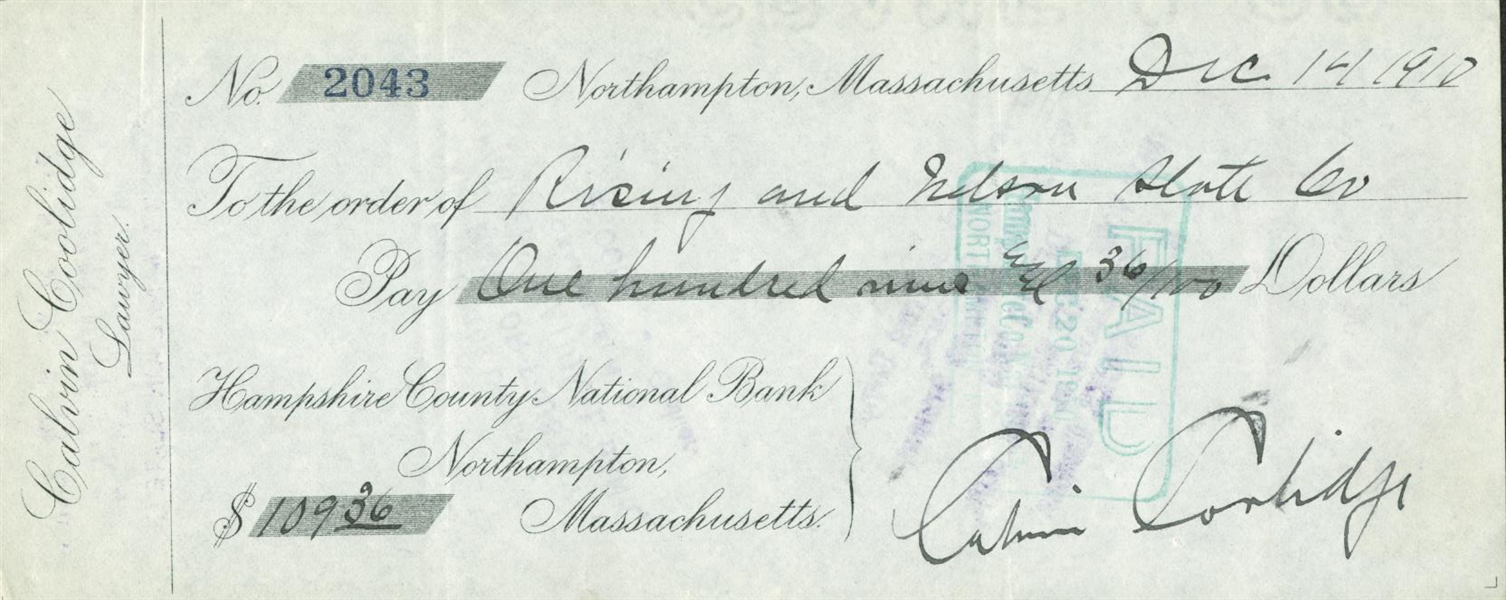 Calvin Coolidge
Lawyer.
No. 2043 Northampton, Massachusetts Dec 14 1910
To the order of Rising and Nelson Slate Co
Pay One hundred nine and 36/100 Dollars
Hampshire County National Bank
Northampton,
Massachusetts.
$ 109 36
Calvin Coolidge
PAID